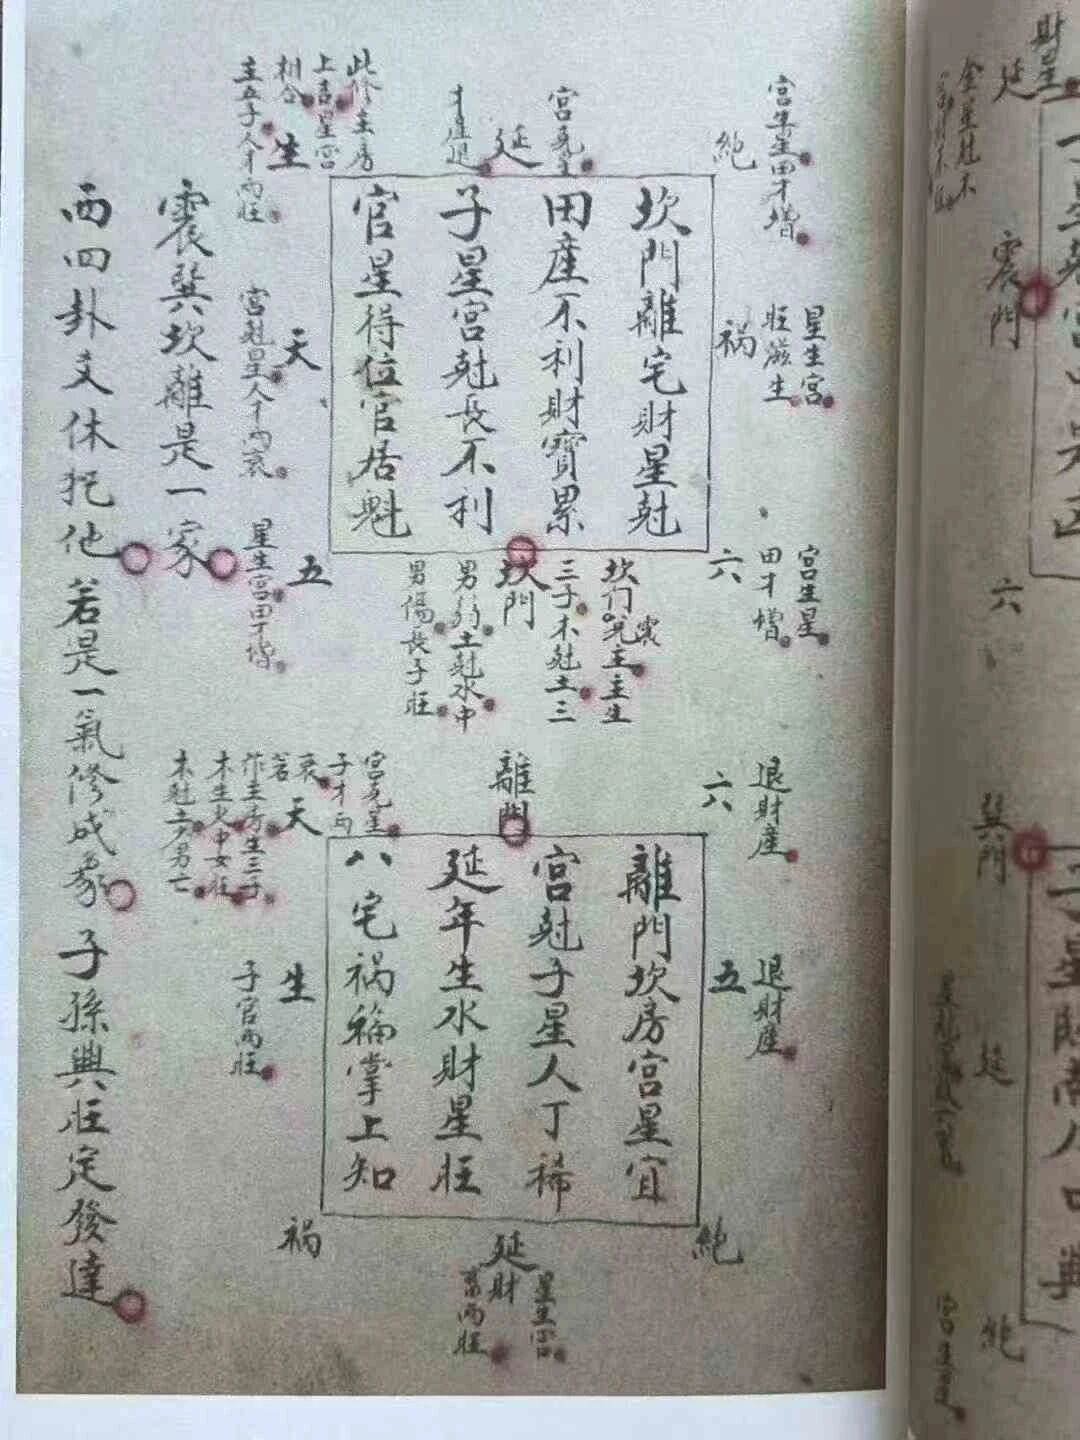 坎門離宅財星尅
田產不利財寶累
子星宮尅長不利
官星得位官居魁
宮生星田才增
絕
星生宮
旺滋生
祸
宮生星
田才增
六
宮克星
延
才產退
此修主房
上吉星宮
相合
主五子人才両旺
生
宮尅星人才両衰
天
星生宮田才增
五
坎門
三子木尅土三
男弱土尅水中
男傷長子旺
離門坎房宮星宜
宮尅子星人丁稀
延年生水財星旺
八宅祸福掌上知
離門
退財產
六
退財產
五
絕
星生宮
延財
両旺
祸
子官両旺
生
宮克星
子才両
衰
天
若
作主房生三子
木生火中女旺
木尅土少男亡
震巽坎離是一家
西四卦爻休犯他
若是一氣修成象
子孫興旺定發達
財星
延
金星尅木
震門
六
巽門
延
絕